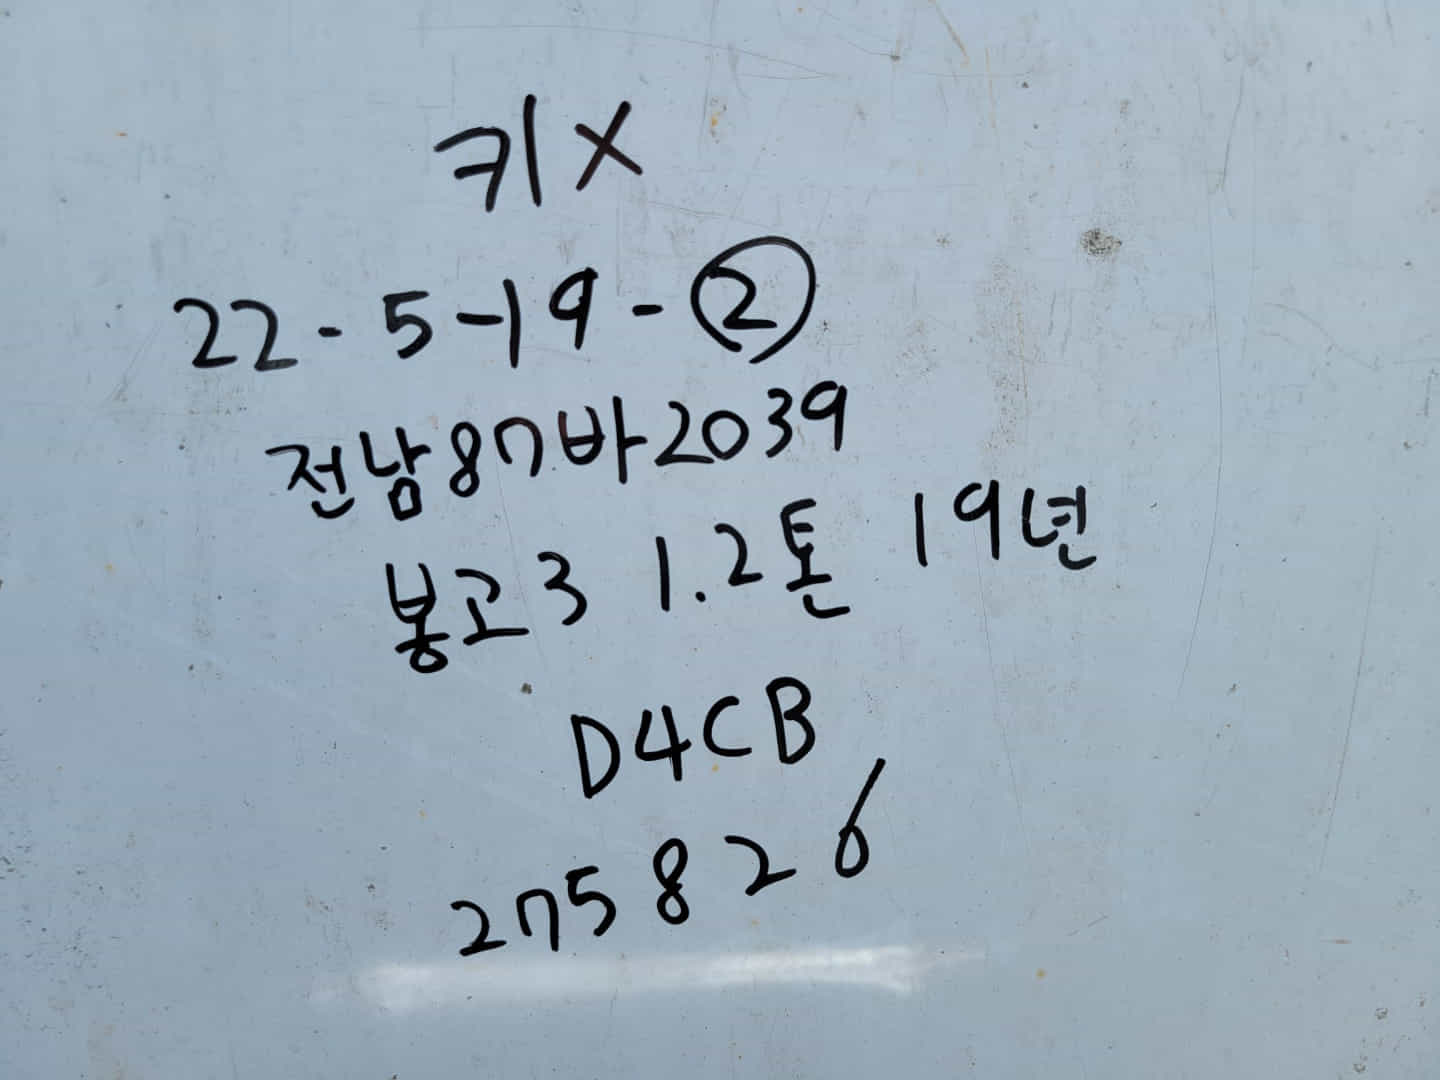 키X
22-5-19-②
전남87바2039
봉고3 1.2톤 19년
D4CB
275826